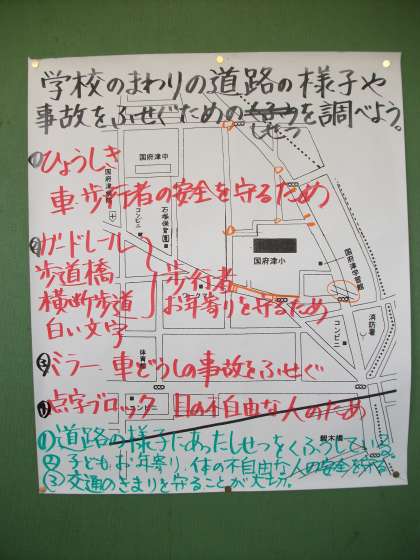 学校のまわりの道路の様子や
事故をふせぐためのしせつを調べよう。
国府津中
①ひょうしき
車・歩行者の安全を守るため
コンビニ
石塚保育園
②ガードレール
歩道橋
横断歩道
白い文字
歩行者
お年寄りを守るため
国府津小
国府津学習館
ワークマン
消防署
コンビニ
体育館
③ミラー 車どうしの事故をふせぐ
④点字ブロック 目の不自由な人のため
コンビニ
親木橋
①道路の様子にあったしせつをくふうしている。
②子ども、お年寄り、体の不自由な人の安全を守る。
③交通のきまりを守ることが大切。